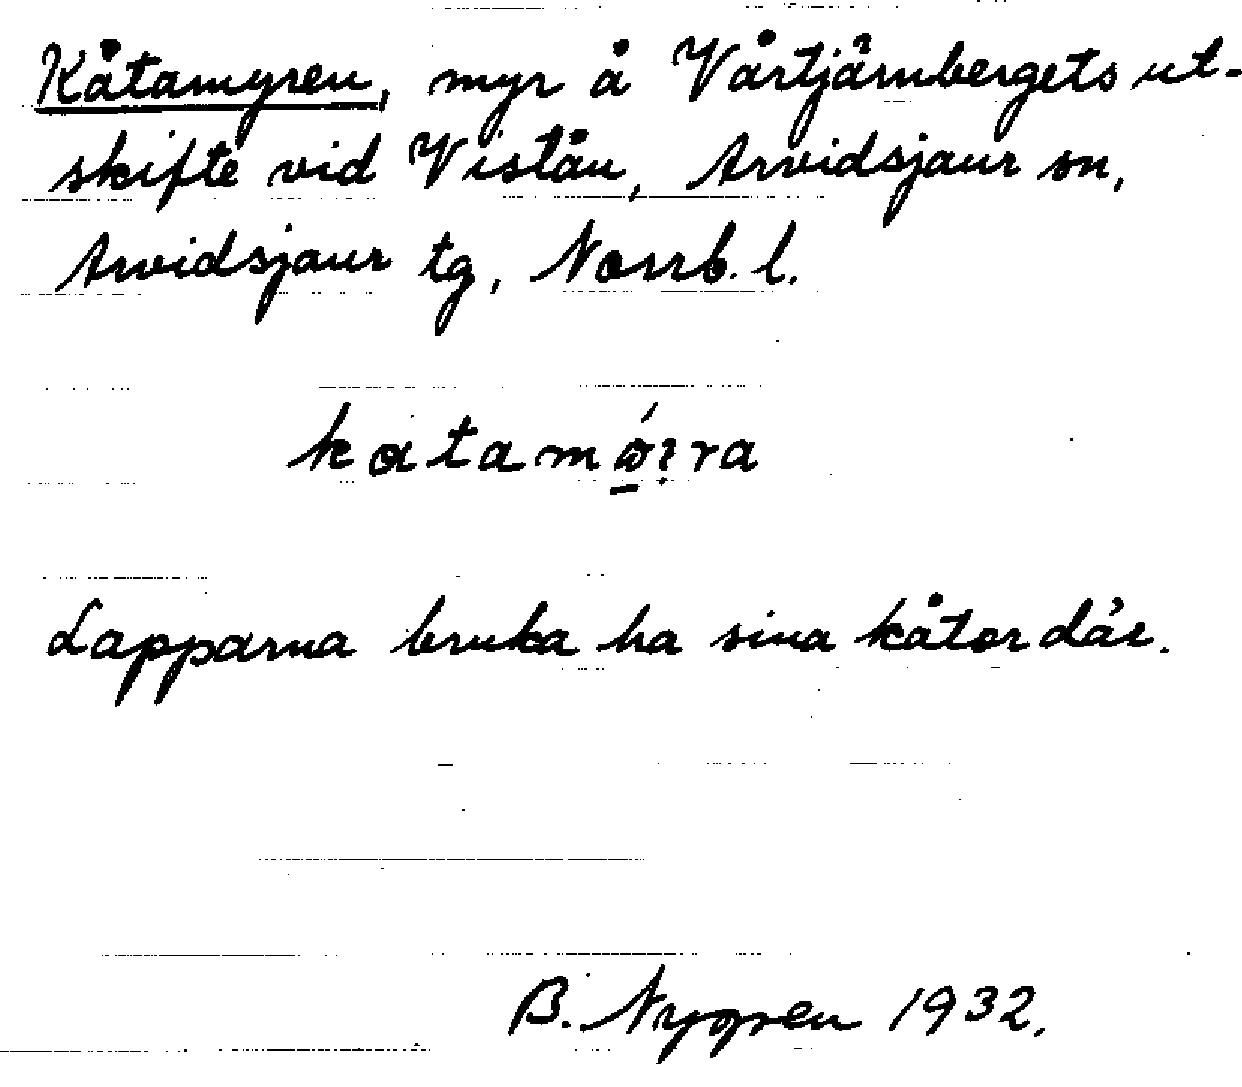 Kåtamyren, myr å Vårtjärnbergets ut-
skifte vid Viståu, Arvidsjaur sn,
Arvidsjaur tg, Norrb. l.
Lapparna bruka ha sina kåtor där.
B. Nygren 1932.